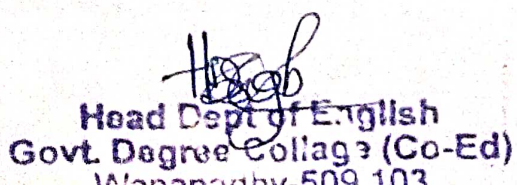 Head Dept of English
Govt. Degree Collage (Co-Ed)
Wanaparthy-509 103